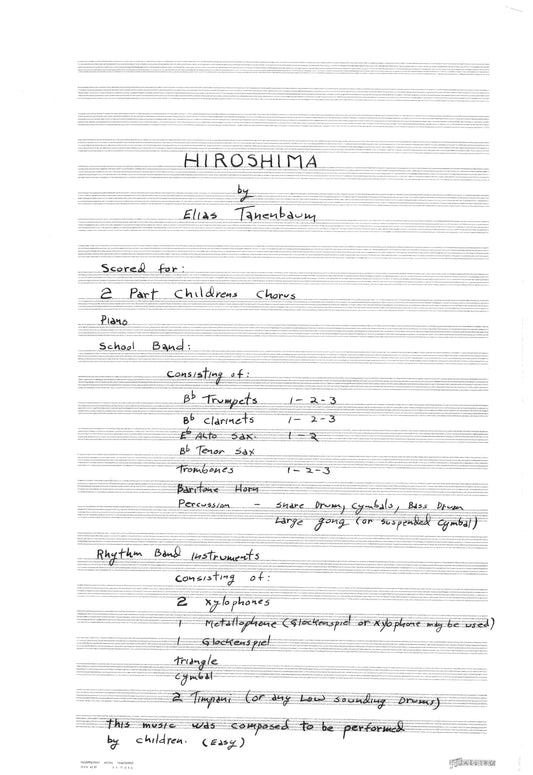 HIROSHIMA
by
Elias Tanenbaum
Scored for:
2 Part Childrens Chorus
Piano
School Band:
Consisting of:
Bb Trumpets 1-2-3
Bb clarinets 1-2-3
Eb Alto Sax. 1-2
Bb Tenor Sax
Trombones 1-2-3
Baritone Horn
Percussion - Snare Drum, Cymbals, Bass Drum
Large gong (or suspended Cymbal)
Rhythm Band Instruments
consisting of:
2 xylophones
1 Metallophone (Glockenspiel or xylophone may be used)
1 Glockenspiel
triangle
cymbal
2 Timpani (or any Low sounding Drums)
This music was composed to be performed
by children. (Easy)